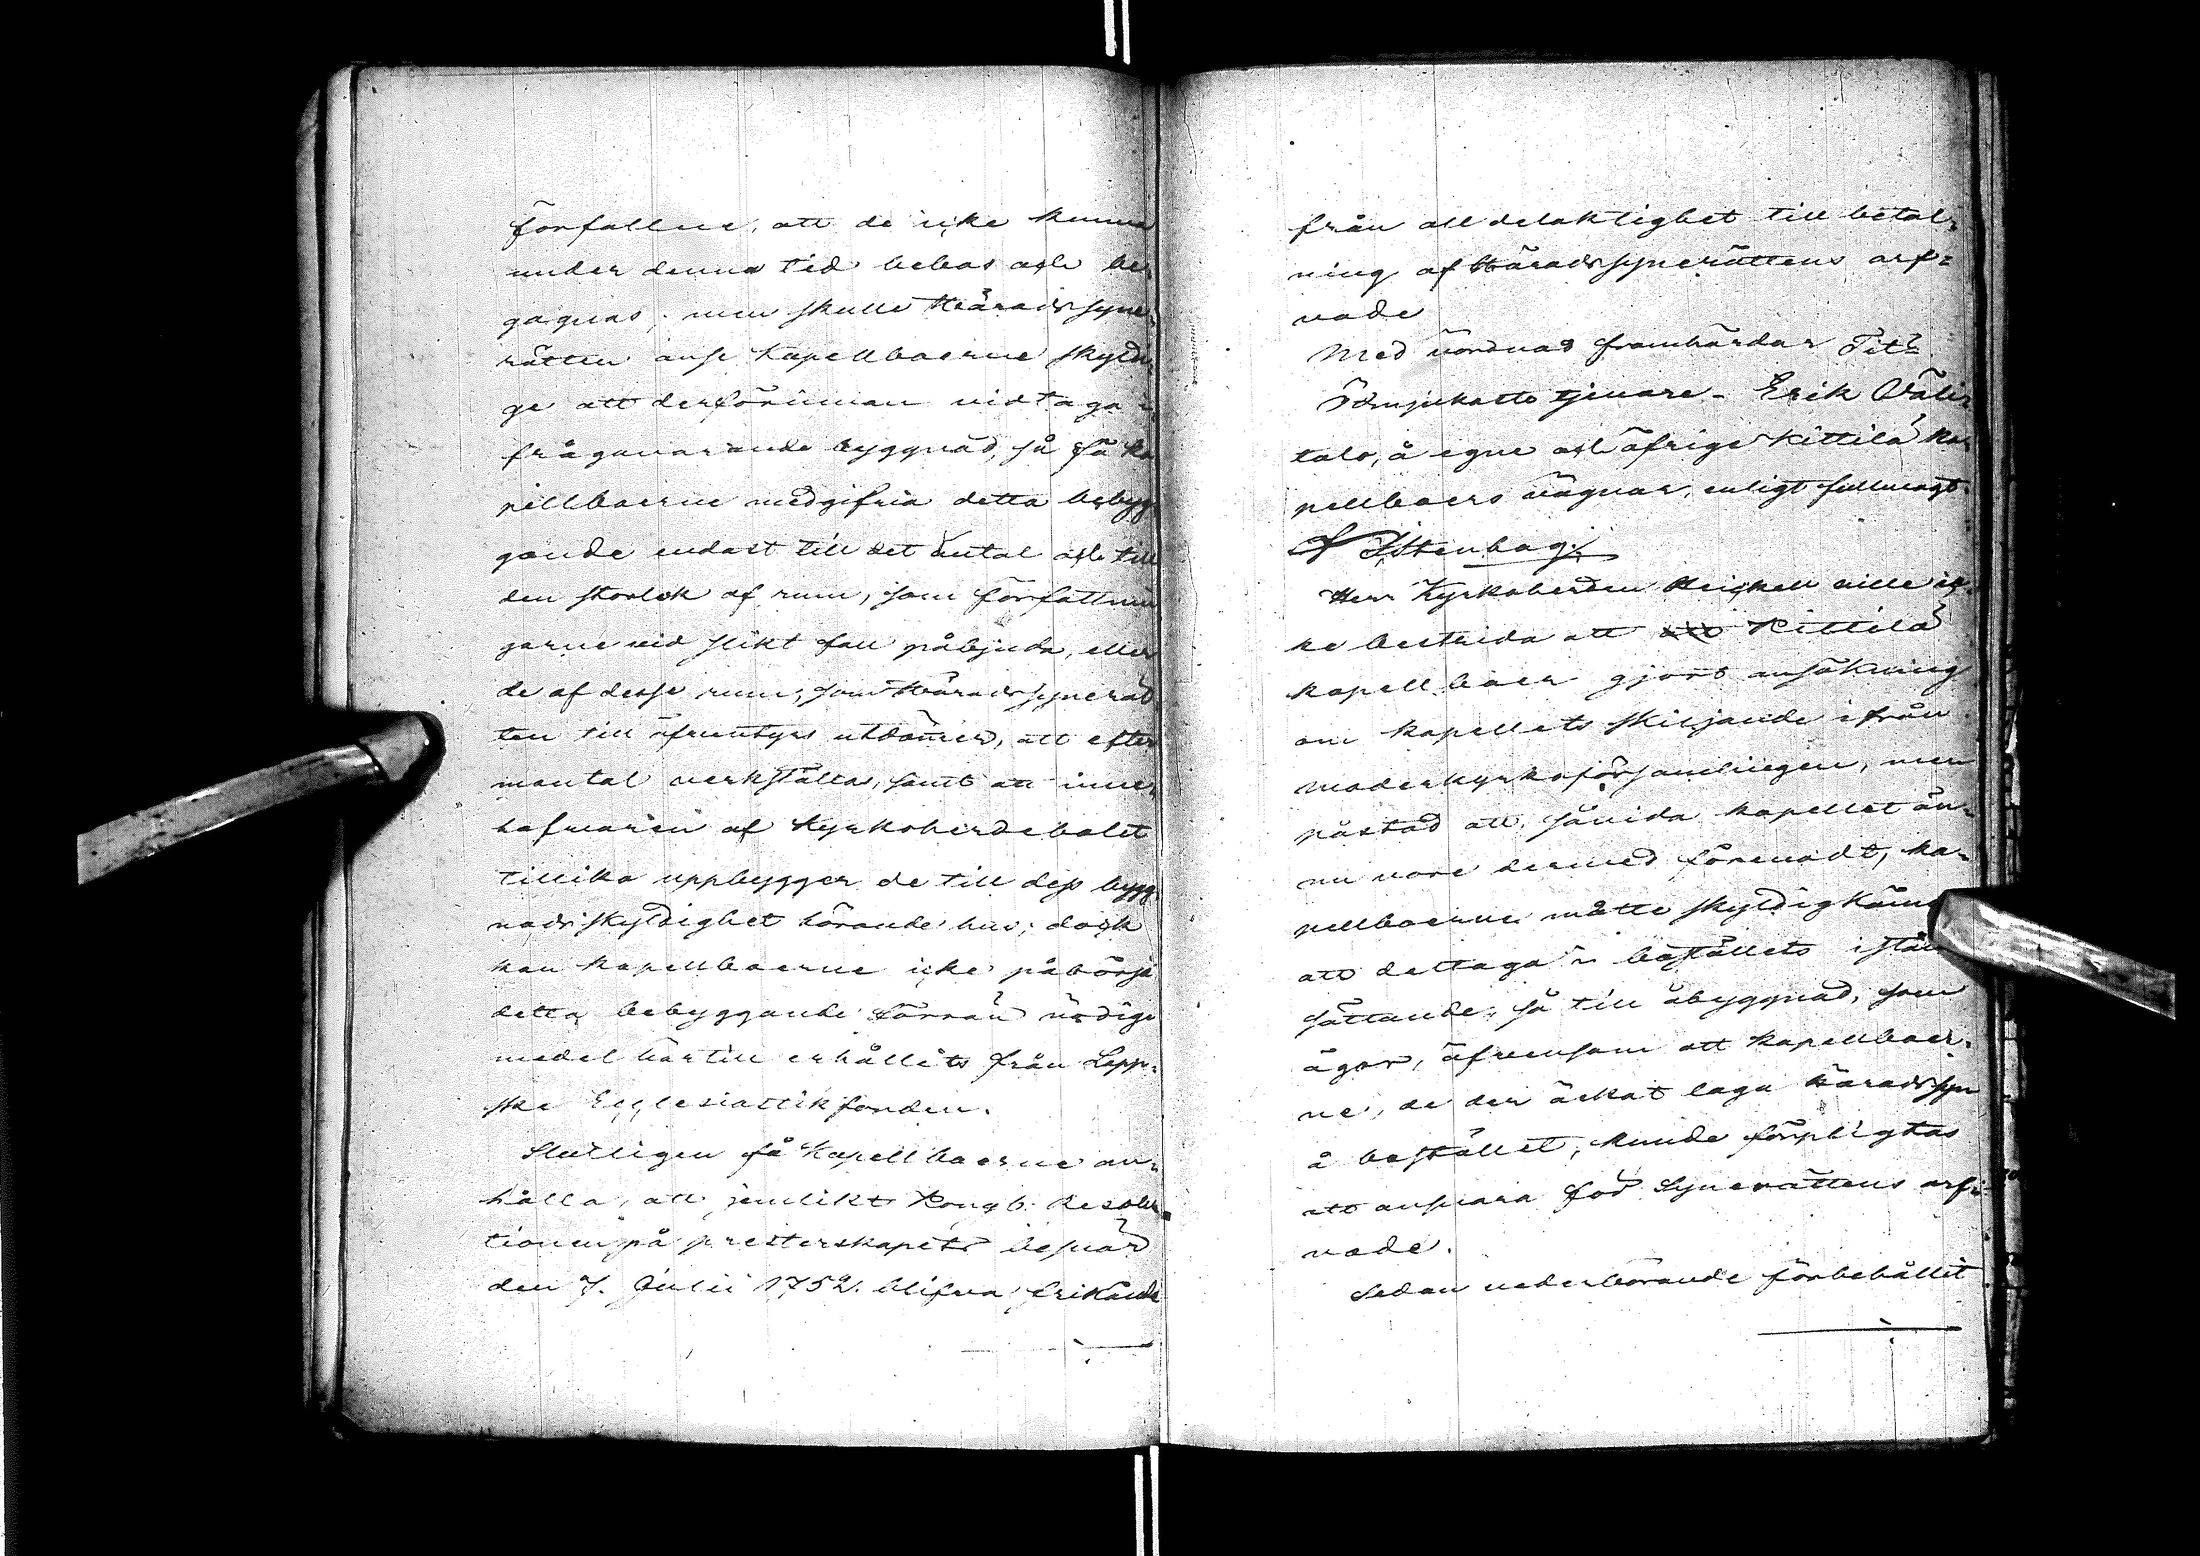 förfallne, att de icke kunna
under denna tid bebos och be-
gagnas; men skulle Häradssyne-
rätten anse Kapellboerne skyldi-
ge att derförinnan vidtaga i
frågavarande byggnad, så få Ka-
pellboerne medgifva detta bebyg-
gande endast till det antal och till
den storlek af rum, som författnin-
garne vid slikt fall påbjuda, eller
de af desse rum, som Häradssynerät-
ten till äfventyrs utdömer, att efter
mantal verkställas, samt att inne-
hafvaren af Kyrkoherdebolet
tillika uppbygger de till dess bygg-
nadsskyldighet hörande hus; dock
kan Kapellboerne icke påbörja
detta bebyggande förrän nödige
medel härtill erhållits från Lapp-
ska Ecclesiastikfonden.
Slutligen få Kapellboerne an-
hålla, att jemlikt Kongl. Resolu-
tionen på presterskapets besvär
den 7. Julii 1752. blifva frikände
från all delaktighet till betal-
ning af Häradssynerättens arf-
vode
Med vördnad framhärdar Titr
Ödmjukaste tjenare - Erik Väli-
talo, å egne och öfrige Kittilä ka-
pellboers vägnar, enligt fullmagt.
Herr Kyrkoherden Heickell ville ic-
ke bestrida att Kittilä
kapellboer gjort ansökning
om kapellets skiljande ifrån
moderkyrkoförsamlingen, men
påstod att, såvida kapellet än-
nu vore dermed förenadt, ka-
pellboerne måtte skyldig känna
att deltaga i boställets istånd-
sättande, så till åbyggnad, som
ägor, äfvensom att kapellboer-
ne, de der äskat laga Häradssyn
å bostället, kunde förpligtas
att ansvara för Synerättens arf-
vode.
Sedan vederbörande förbehållit